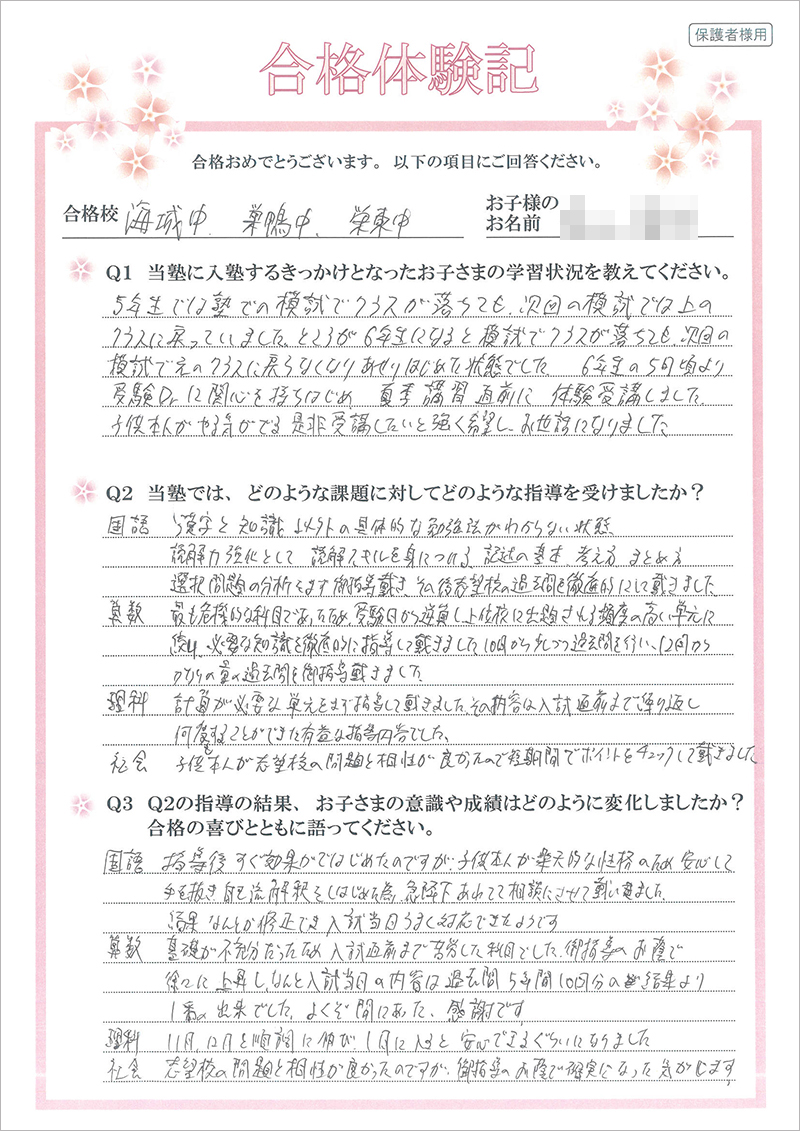 保護者様用
合格体験記
合格おめでとうございます。以下の項目にご回答ください。
合格校 海城中、巣鴨中、栄東中
お子様の
お名前
Q1 当塾に入塾するきっかけとなったお子さまの学習状況を教えてください。
5年生では塾での模試でクラスが落ちても、次回の模試では上の
クラスに戻っていました。ところが6年生になると模試でクラスが落ちても、次回の
模試で元のクラスに戻らなくなりあせりはじめた状態でした。 6年生の5月頃より
受験Dr.に関心を持ちはじめ 夏季講習直前に 体験受講しました。
子供本人がやる気がでる 是非受講したいと強く希望し、お世話になりました。
Q2 当塾では、どのような課題に対してどのような指導を受けましたか？
国語 漢字と知識以外の具体的な勉強法がわからない状態
読解力強化として 読解スキルを身につける、記述の基本、考え方、まとめ方
選択問題の分析をまず御指導戴き、その後志望校の過去問を徹底的にして戴きました。
算数 最も危機的な科目であったため、受験日から逆算し上位校に出題される頻度の高い単元に
絞り、必要な知識を徹底的に指導して戴きました。10月から少しづつ過去問を行い、12月から
かなりの量の過去問を御指導戴きました。
理科 計算が必要な単元をまず指導して戴きました。その内容は入試直前まで繰り返し
何度もすることができた有益な指導内容でした。
社会 子供本人が志望校の問題と相性が良かったので短期間でポイントをチェックして戴きました
Q3 Q2の指導の結果、お子さまの意識や成績はどのように変化しましたか？
合格の喜びとともに語ってください。
国語 指導後すぐ効果がではじめたのですが、子供本人が楽天的な性格のため 安心して
手を抜き 自己流解釈をしはじめた為、急降下 あわてて相談にさせて戴いました。
結果 なんとか修正でき 入試当日うまく対応できたようです
算数 基礎が不充分だったため 入試直前まで苦労した科目でした。御指導のお陰で
徐々に上昇し、なんと入試当日の内容は過去問5年間10回分の結果より
1番の出来でした。よくぞ間にあった、感謝です
理科 11月、12月と順調に伸び、1月に入ると 安心できるぐらいになりました
社会 志望校の問題と相性が良かったのですが、御指導のお陰で確実になった気がします